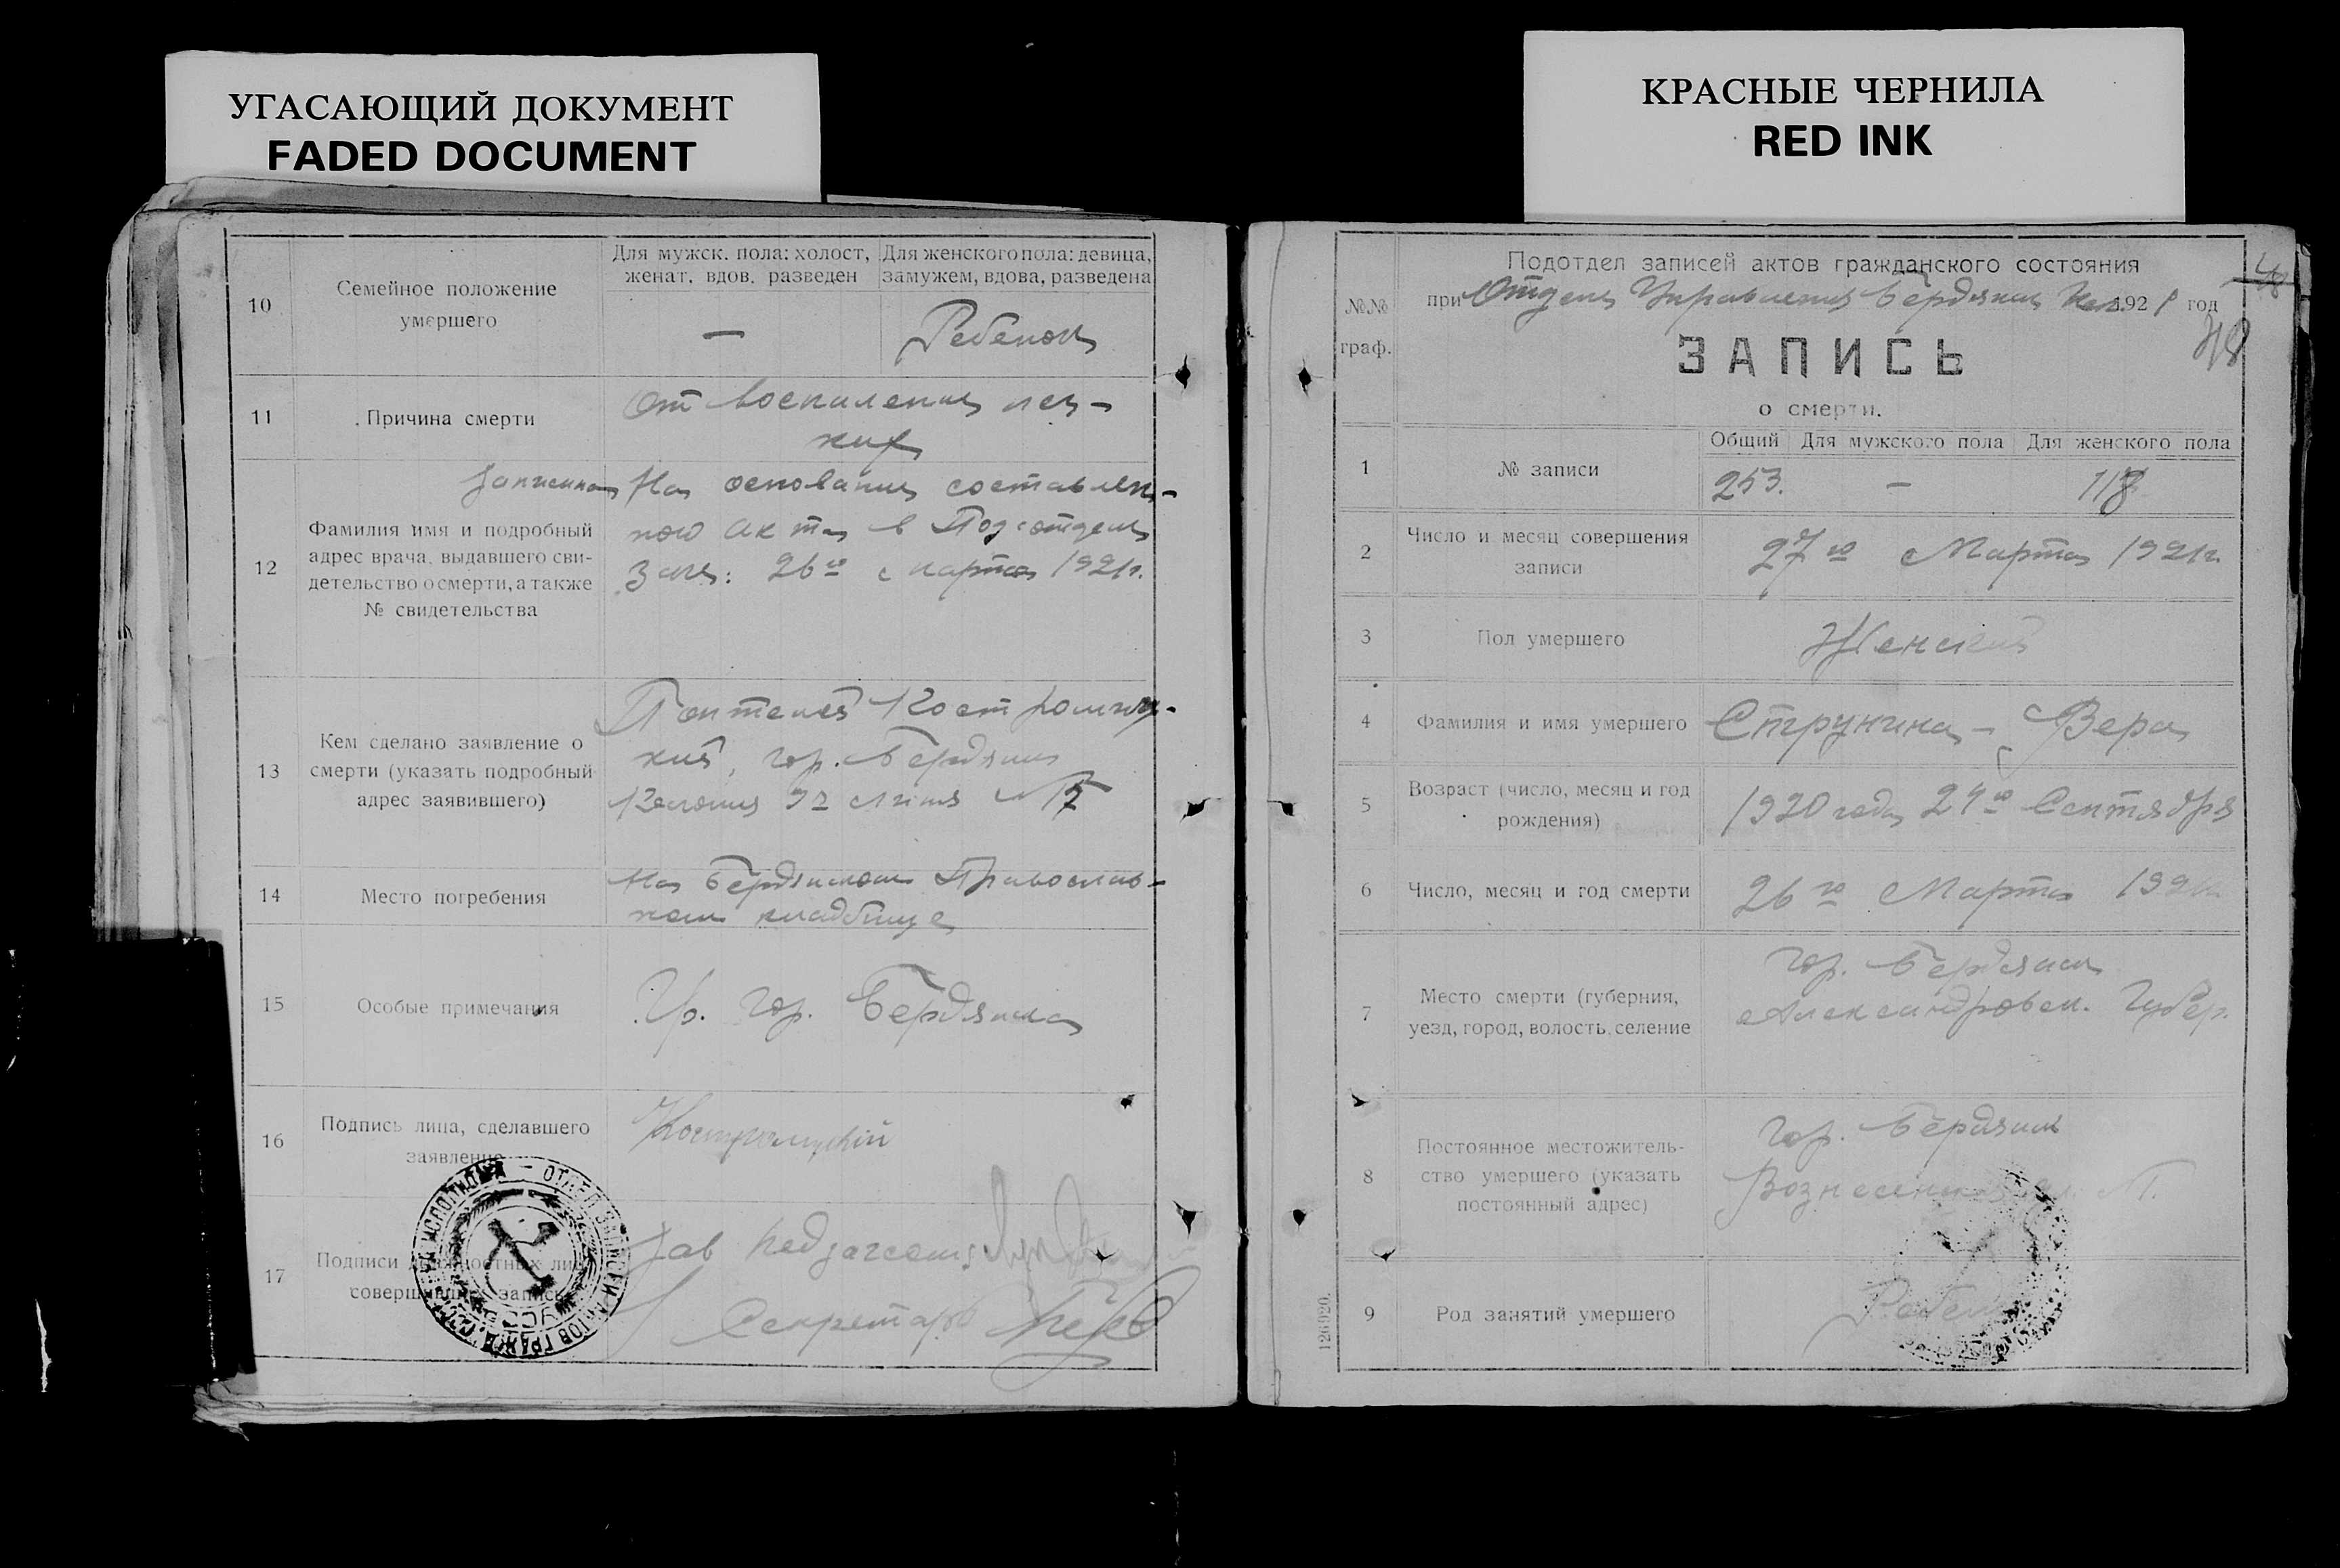 УГАСАЮЩИЙ ДОКУМЕНТ
FADED DOCUMENT
КРАСНЫЕ ЧЕРНИЛА
RED INK
10
Семейное положение
умершего
Для мужск. пола: холост,
женат, вдов, разведен
Для женского пола: девица,
замужем, вдова, разведена
—
Ребенок
11
Причина смерти
От воспаления лег-
ких
12
Фамилия имя и подробный
адрес врача, выдавшего сви-
детельство о смерти, а также
№ свидетельства
Записана На основании составлен-
ного акта в Подотделе
Загс: 26го марта 1921г.
13
Кем сделано заявление о
смерти (указать подробный
адрес заявившего)
Пантелей Костромиц-
кий, гор. Бердянск
Колония линия №
14
Место погребения
На Бердянском Православ-
ном кладбище
15
Особые примечания
Гр. гор. Бердянска
16
Подпись лица, сделавшего
заявление
Костромицкий
17
Подписи должностных лиц
совершивших запись
Зав подзагсом
Секретарь
ОТДЕЛ ЗАПИСИ АКТОВ ГРАЖД.
УССР
Подотдел записей актов гражданского состояния
при Отделе Управления Бердянск 1921 год
48
48
№№
граф.
ЗАПИСЬ
о смерти.
1
№ записи
Общий Для мужского пола Для женского пола
253. — 118
2
Число и месяц совершения
записи
27го Марта 1921г.
3
Пол умершего
Женский
4
Фамилия и имя умершего
Струнина - Вера
5
Возраст (число, месяц и год
рождения)
1920 года 24го Сентября
6
Число, месяц и год смерти
26го Марта 1921г.
7
Место смерти (губерния,
уезд, город, волость, селение
гор. Бердянск
Александровск. Губер.
8
Постоянное местожитель-
ство умершего (указать
постоянный адрес)
гор. Бердянск
Вознесенская ул. №
9
Род занятий умершего
Ребенок
126920.